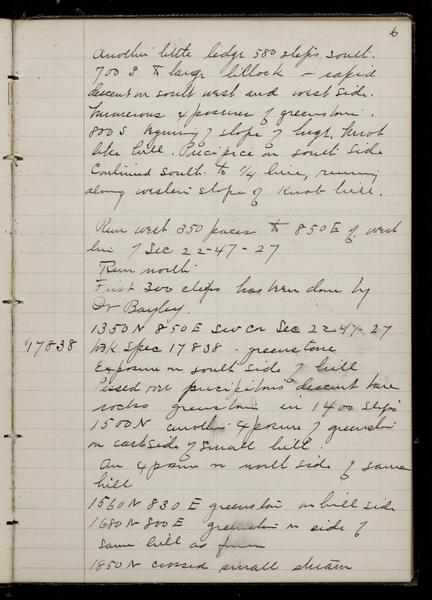 6
Another little ledge 580 steps south.
700 S to large hillock - rapid
descent on south west and west side.
Numerous exposures of greenstone.
800 S beginning of slope of high knob
like hill. Precipice on south side
Continued south to 1/4 line, running
along western slope of Knob hill.
Run west 350 paces to 850 E of west
line of Sec 22-47-27
Run north
First 300 steps has been done by
Dr Bayley.
1350 N 850 E SW Cor Sec 22-47-27
17838 Wk Spec 17838 - greenstone
Exposure on south side of hill
Passed over precipitous descent bare
rocks greenstone in 1400 steps
1500 N another exposure of greenstone
on east side of small hill
An exposure on north side of same
hill
1560 N 830 E greenstone on hill side
1680 N 800 E greenstone on side of
same hill as
1850 N crossed small stream